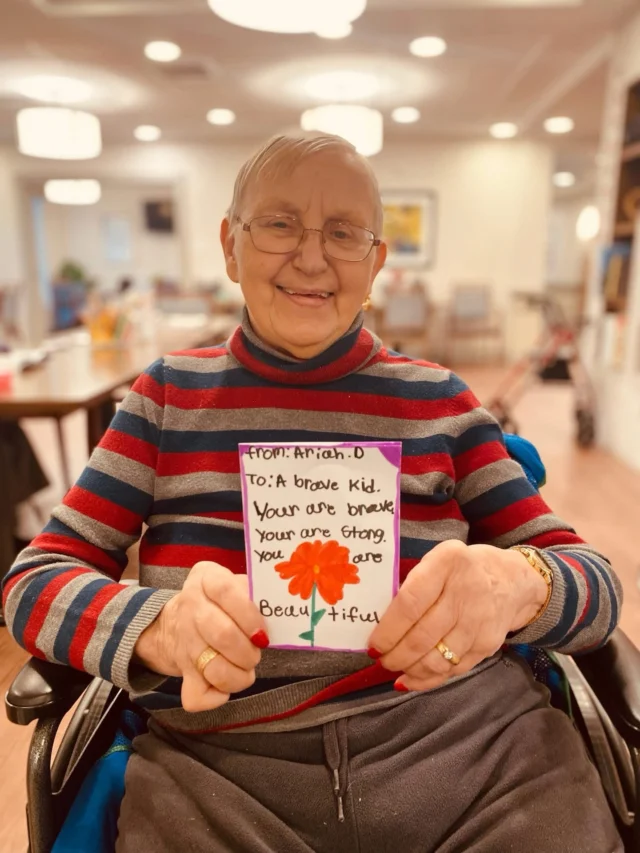 from: Ariah.D
To: A brave kid.
Your are brave,
Your are Stong.
You are
Beau tiful